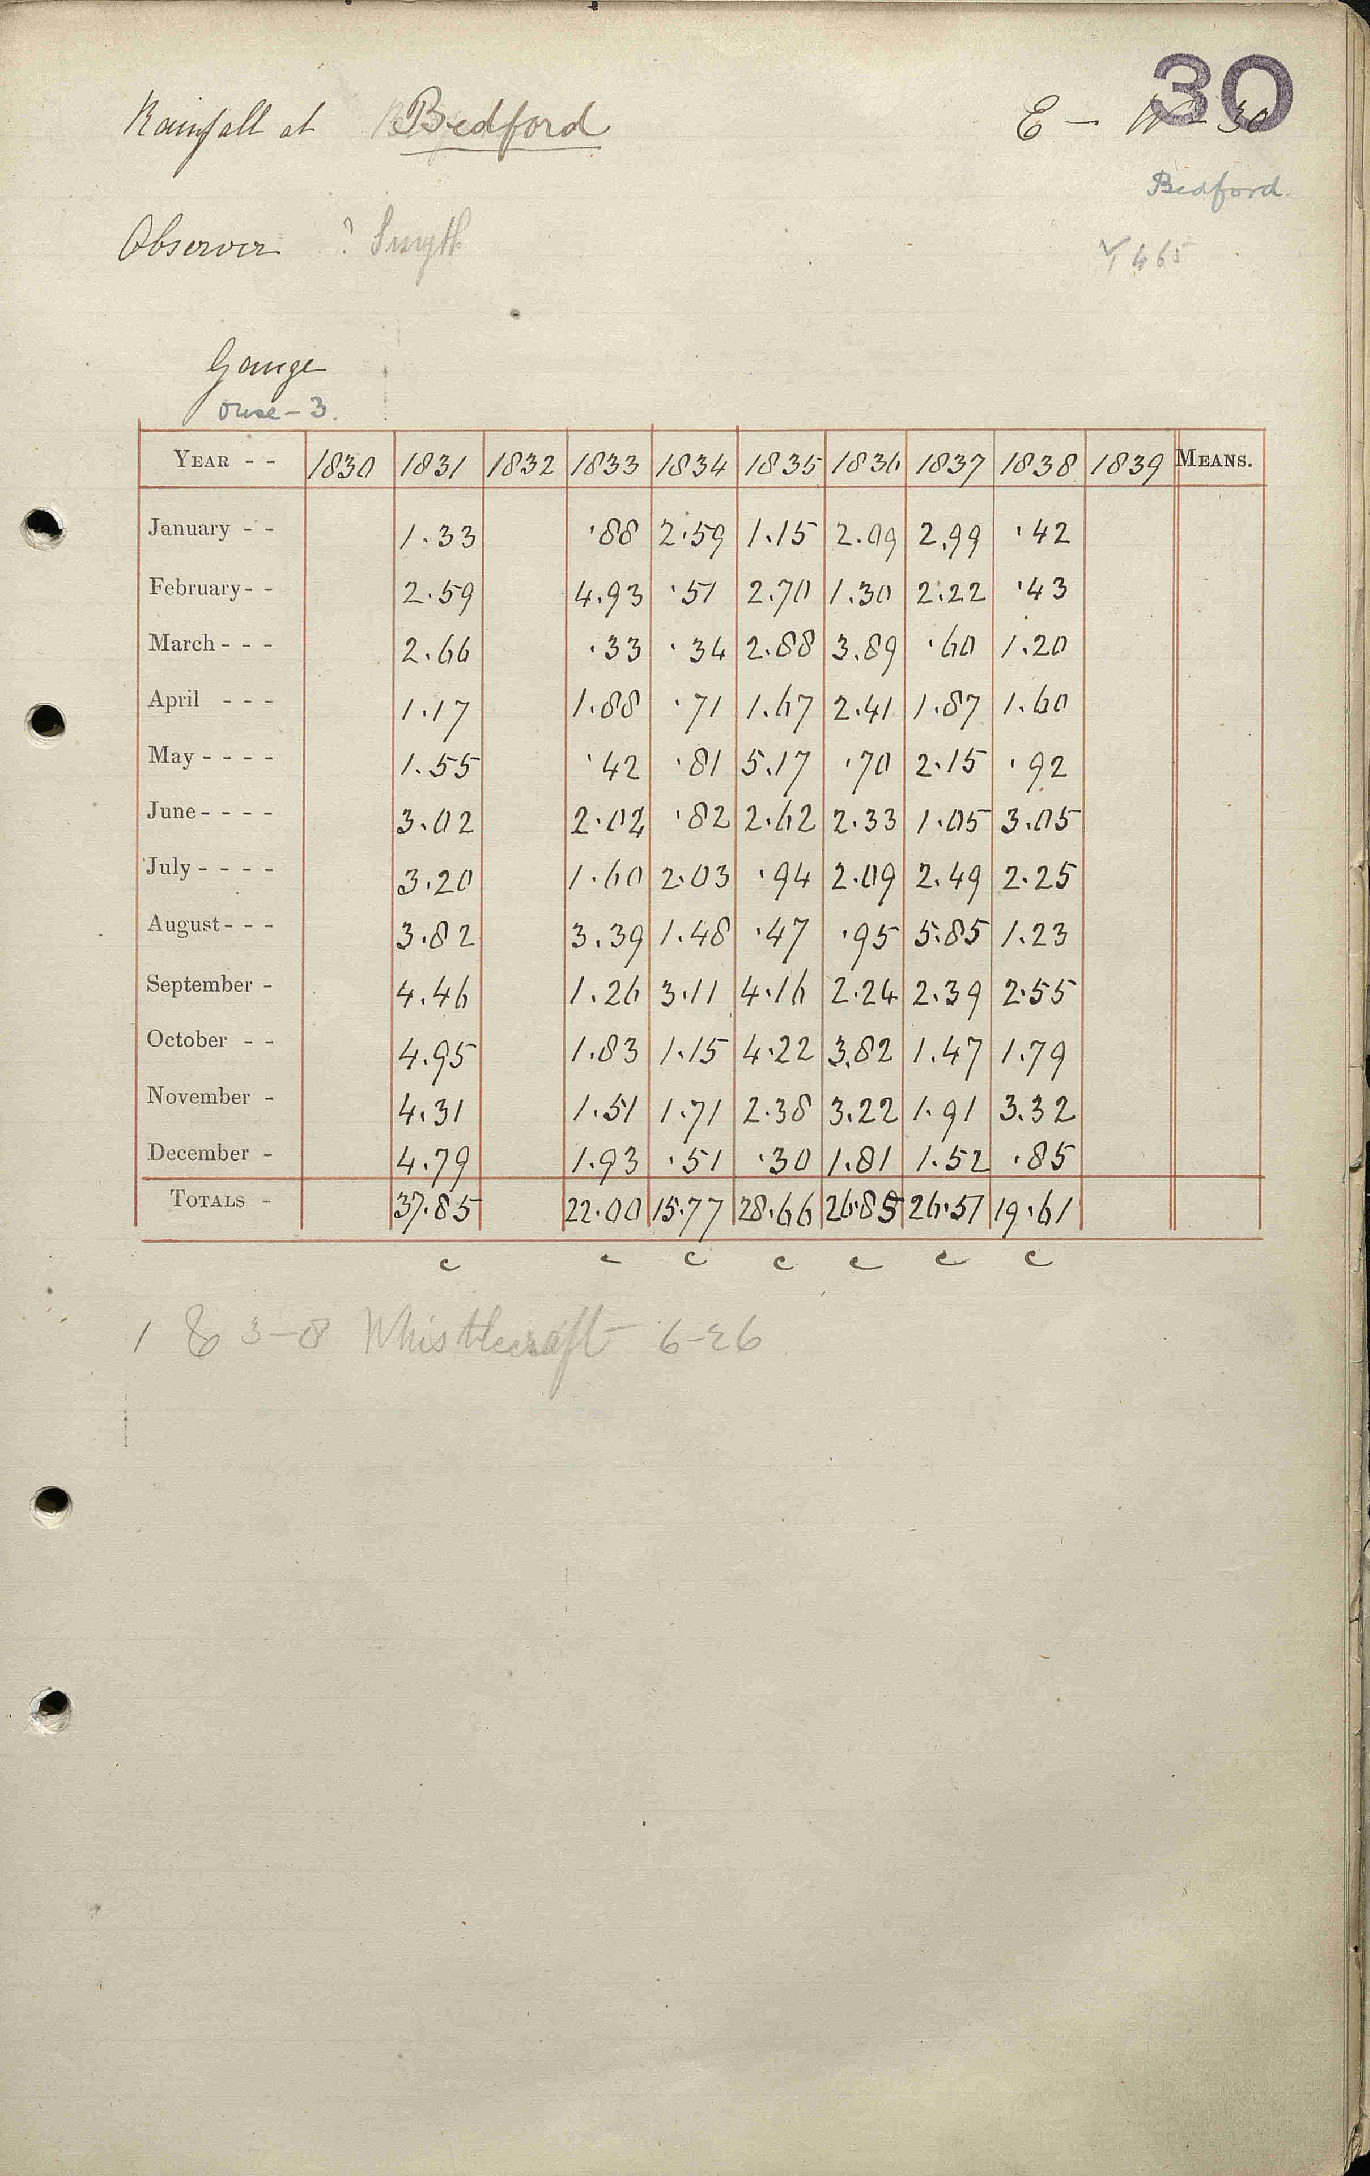 30
Rainfall at Bedford E - W - 30
Bedford.
Observer ? Smyth
√ 465
Gauge
Ouse - 3.
YEAR - - 1830 1831 1832 1833 1834 1835 1836 1837 1838 1839 MEANS.
January - - 1.33 .88 2.59 1.15 2.09 2.99 .42
February - - 2.59 4.93 .51 2.70 1.30 2.22 .43
March - - - 2.66 .33 .34 2.88 3.89 .60 1.20
April - - - 1.17 1.88 .71 1.67 2.41 1.87 1.60
May - - - - 1.55 .42 .81 5.17 .70 2.15 .92
June - - - - 3.02 2.04 .82 2.62 2.33 1.05 3.05
July - - - - 3.20 1.60 2.03 .94 2.09 2.49 2.25
August - - - 3.82 3.39 1.48 .47 .95 5.85 1.23
September - 4.46 1.26 3.11 4.16 2.24 2.39 2.55
October - - 4.95 1.83 1.15 4.22 3.82 1.47 1.79
November - 4.31 1.51 1.71 2.38 3.22 1.91 3.32
December - 4.79 1.93 .51 .30 1.81 1.52 .85
TOTALS - 37.85 22.00 15.77 28.66 26.85 26.51 19.61
c c c c c c c
1 & 3-8 Whistlecraft 6-26